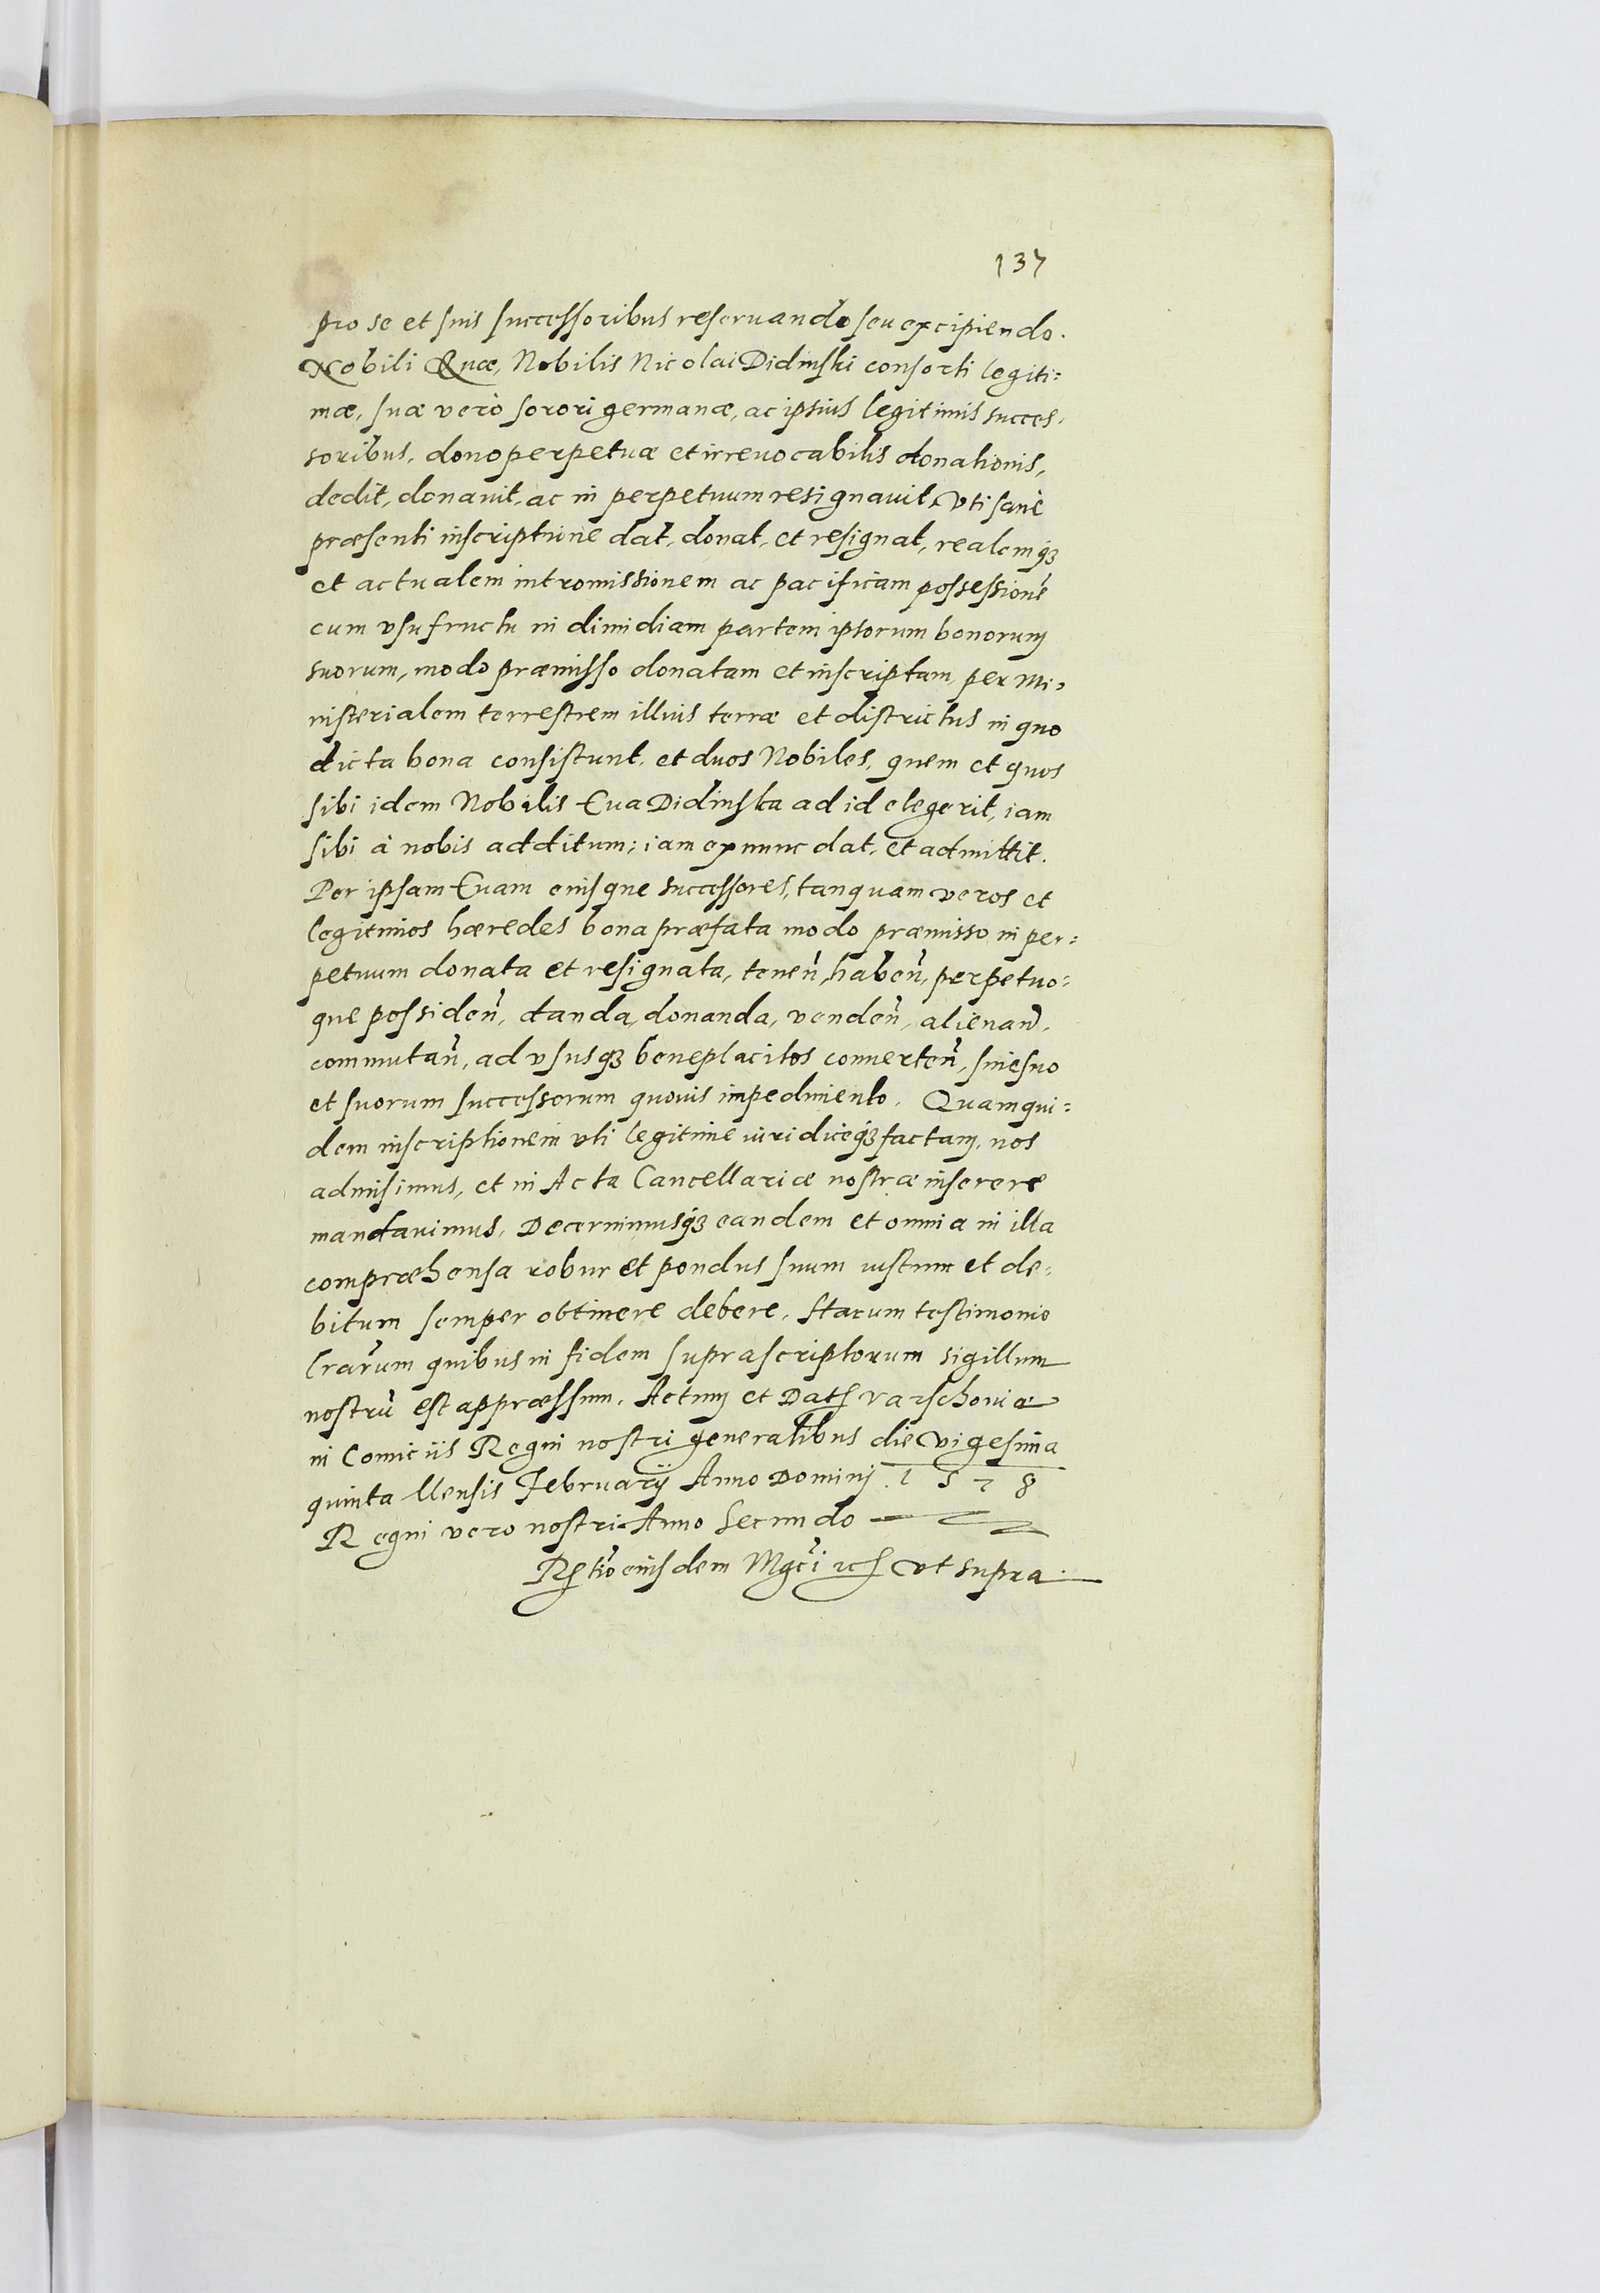 137
pro se et suis successoribus reseruando seu excipiendo.
Nobili Euæ, Nobilis Nicolai Didinski consorti legiti=
mæ, suæ verò sorori germanæ, ac ipsius legitimis succes,
soribus, dono perpetuæ et irreuocabilis donationis,
dedit, donauit, ac in perpetuum resignauit, Vti sanè
præsenti inscriptione dat, donat, et resignat, realemq3
et actualem intromissionem ac pacificam possessionẽ
cum vsufructu in dimidiam partem ipsorum bonorum
suorum, modo præmisso donatam et inscriptam, per Mi=
nisterialem terrestrem illius terræ et districtus in quo
dicta bona consistunt, et duos Nobiles, quem et quos
sibi idem Nobilis Eua Didinska ad id elegerit, iam
sibi à nobis additum; iam ex nunc dat, et admittit.
Per ipsam Euam eiusque successores, tanquam veros et
legitimos hæredes bona præfata modo præmisso in per=
petuum donata et resignata, teneñ, habeñ, perpetuo=
que possideñ, danda, donanda, vendeñ, alienañ,
commutañ, ad vsusq3 beneplacitos conuerteñ, sine suo
et suorum successorum quouis impedimento. Quamqui=
dem inscriptionem vti legitime iuridiceq3 factam, nos
admisimus, et in Acta Cancellariæ nostræ inserere
mandauimus, Decernimusq3 eandem et omnia in illa
compræhensa robur et pondus suum iustum et de=
bitum semper obtinere debere, Harum testimonio
Lrarum quibus in fidem suprascriptorum sigillum
nostrũ est appræssum. Actum et Dat Varschouiæ
in Comiciis Regni nostri generalibus die vigesima
quinta Mensis Februarij Anno Domini 1578
Regni vero nostri Anno Secundo
Rtio eiusdem Mgci etc vt supra